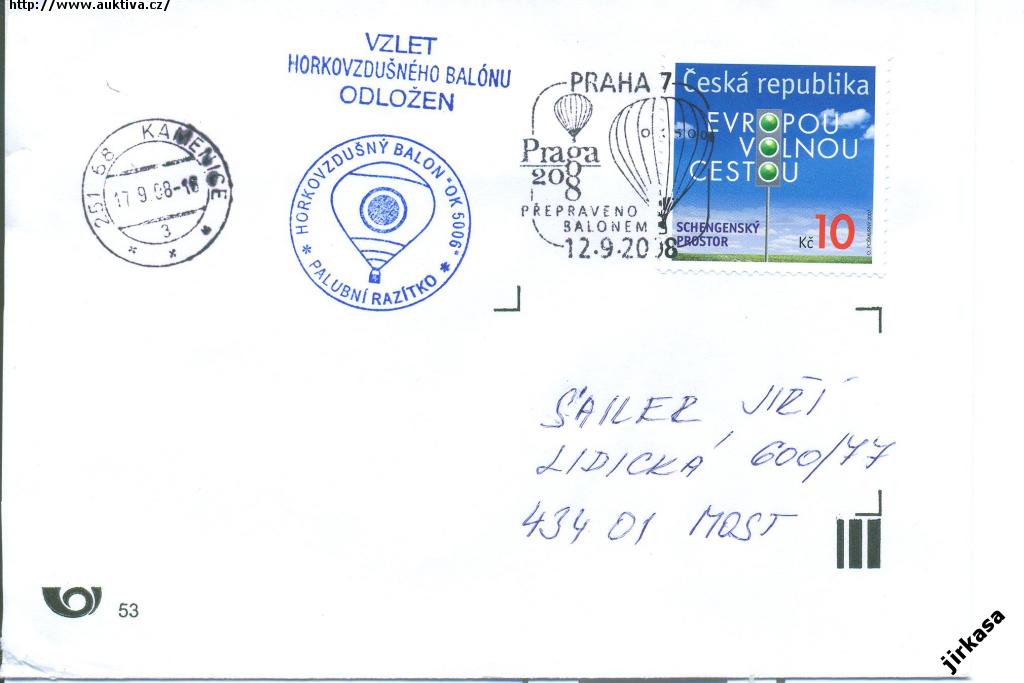 http://www.auktiva.cz/
VZLET
HORKOVZDUŠNÉHO BALÓNU
ODLOŽEN
251 68 KAMENICE
17.9.08-16
3
* HORKOVZDUŠNÝ BALON "OK 5006" *
PALUBNÍ RAZÍTKO
PRAHA 7
Praga
2008
PŘEPRAVENO
BALONEM
12.9.2008
Česká republika
EVROPOU
VOLNOU
CESTOU
SCHENGENSKÝ
PROSTOR
Kč 10
ŠAILER JIŘÍ
LIDICKÁ 600/77
434 01 MOST
53
jirkasa